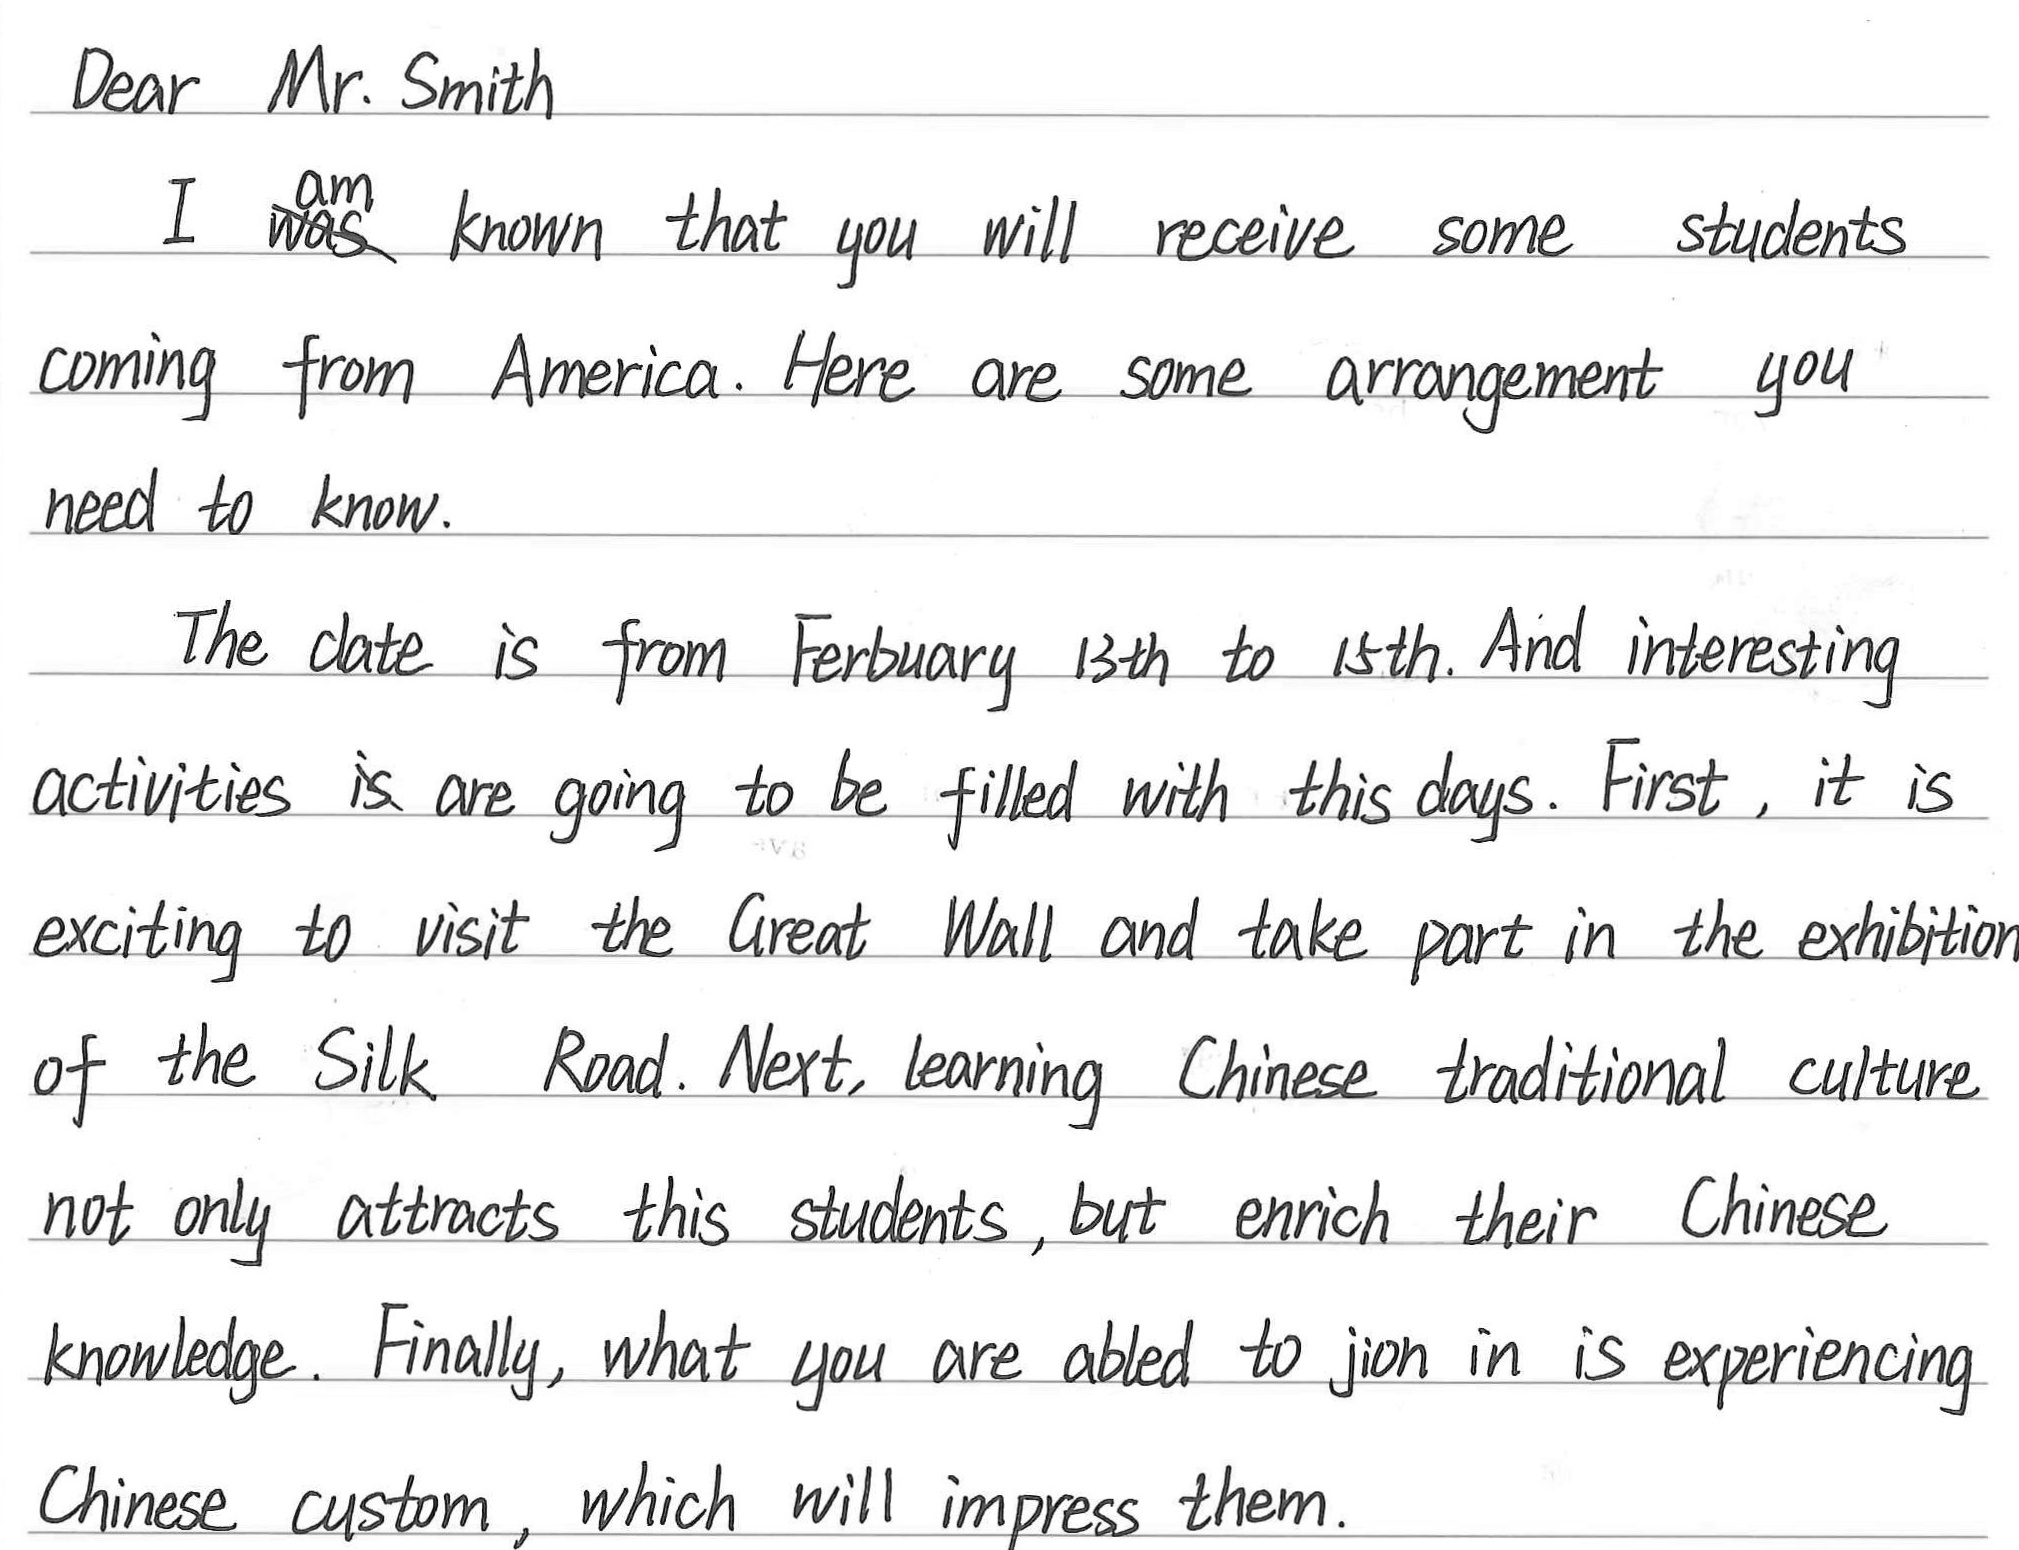 Dear Mr. Smith
I am known that you will receive some students
coming from America. Here are some arrangement you
need to know.
The date is from Ferbuary 13th to 15th. And interesting
activities is are going to be filled with this days. First, it is
exciting to visit the Great Wall and take part in the exhibition
of the Silk Road. Next, learning Chinese traditional culture
not only attracts this students, but enrich their Chinese
knowledge. Finally, what you are abled to jion in is experiencing
Chinese custom, which will impress them.